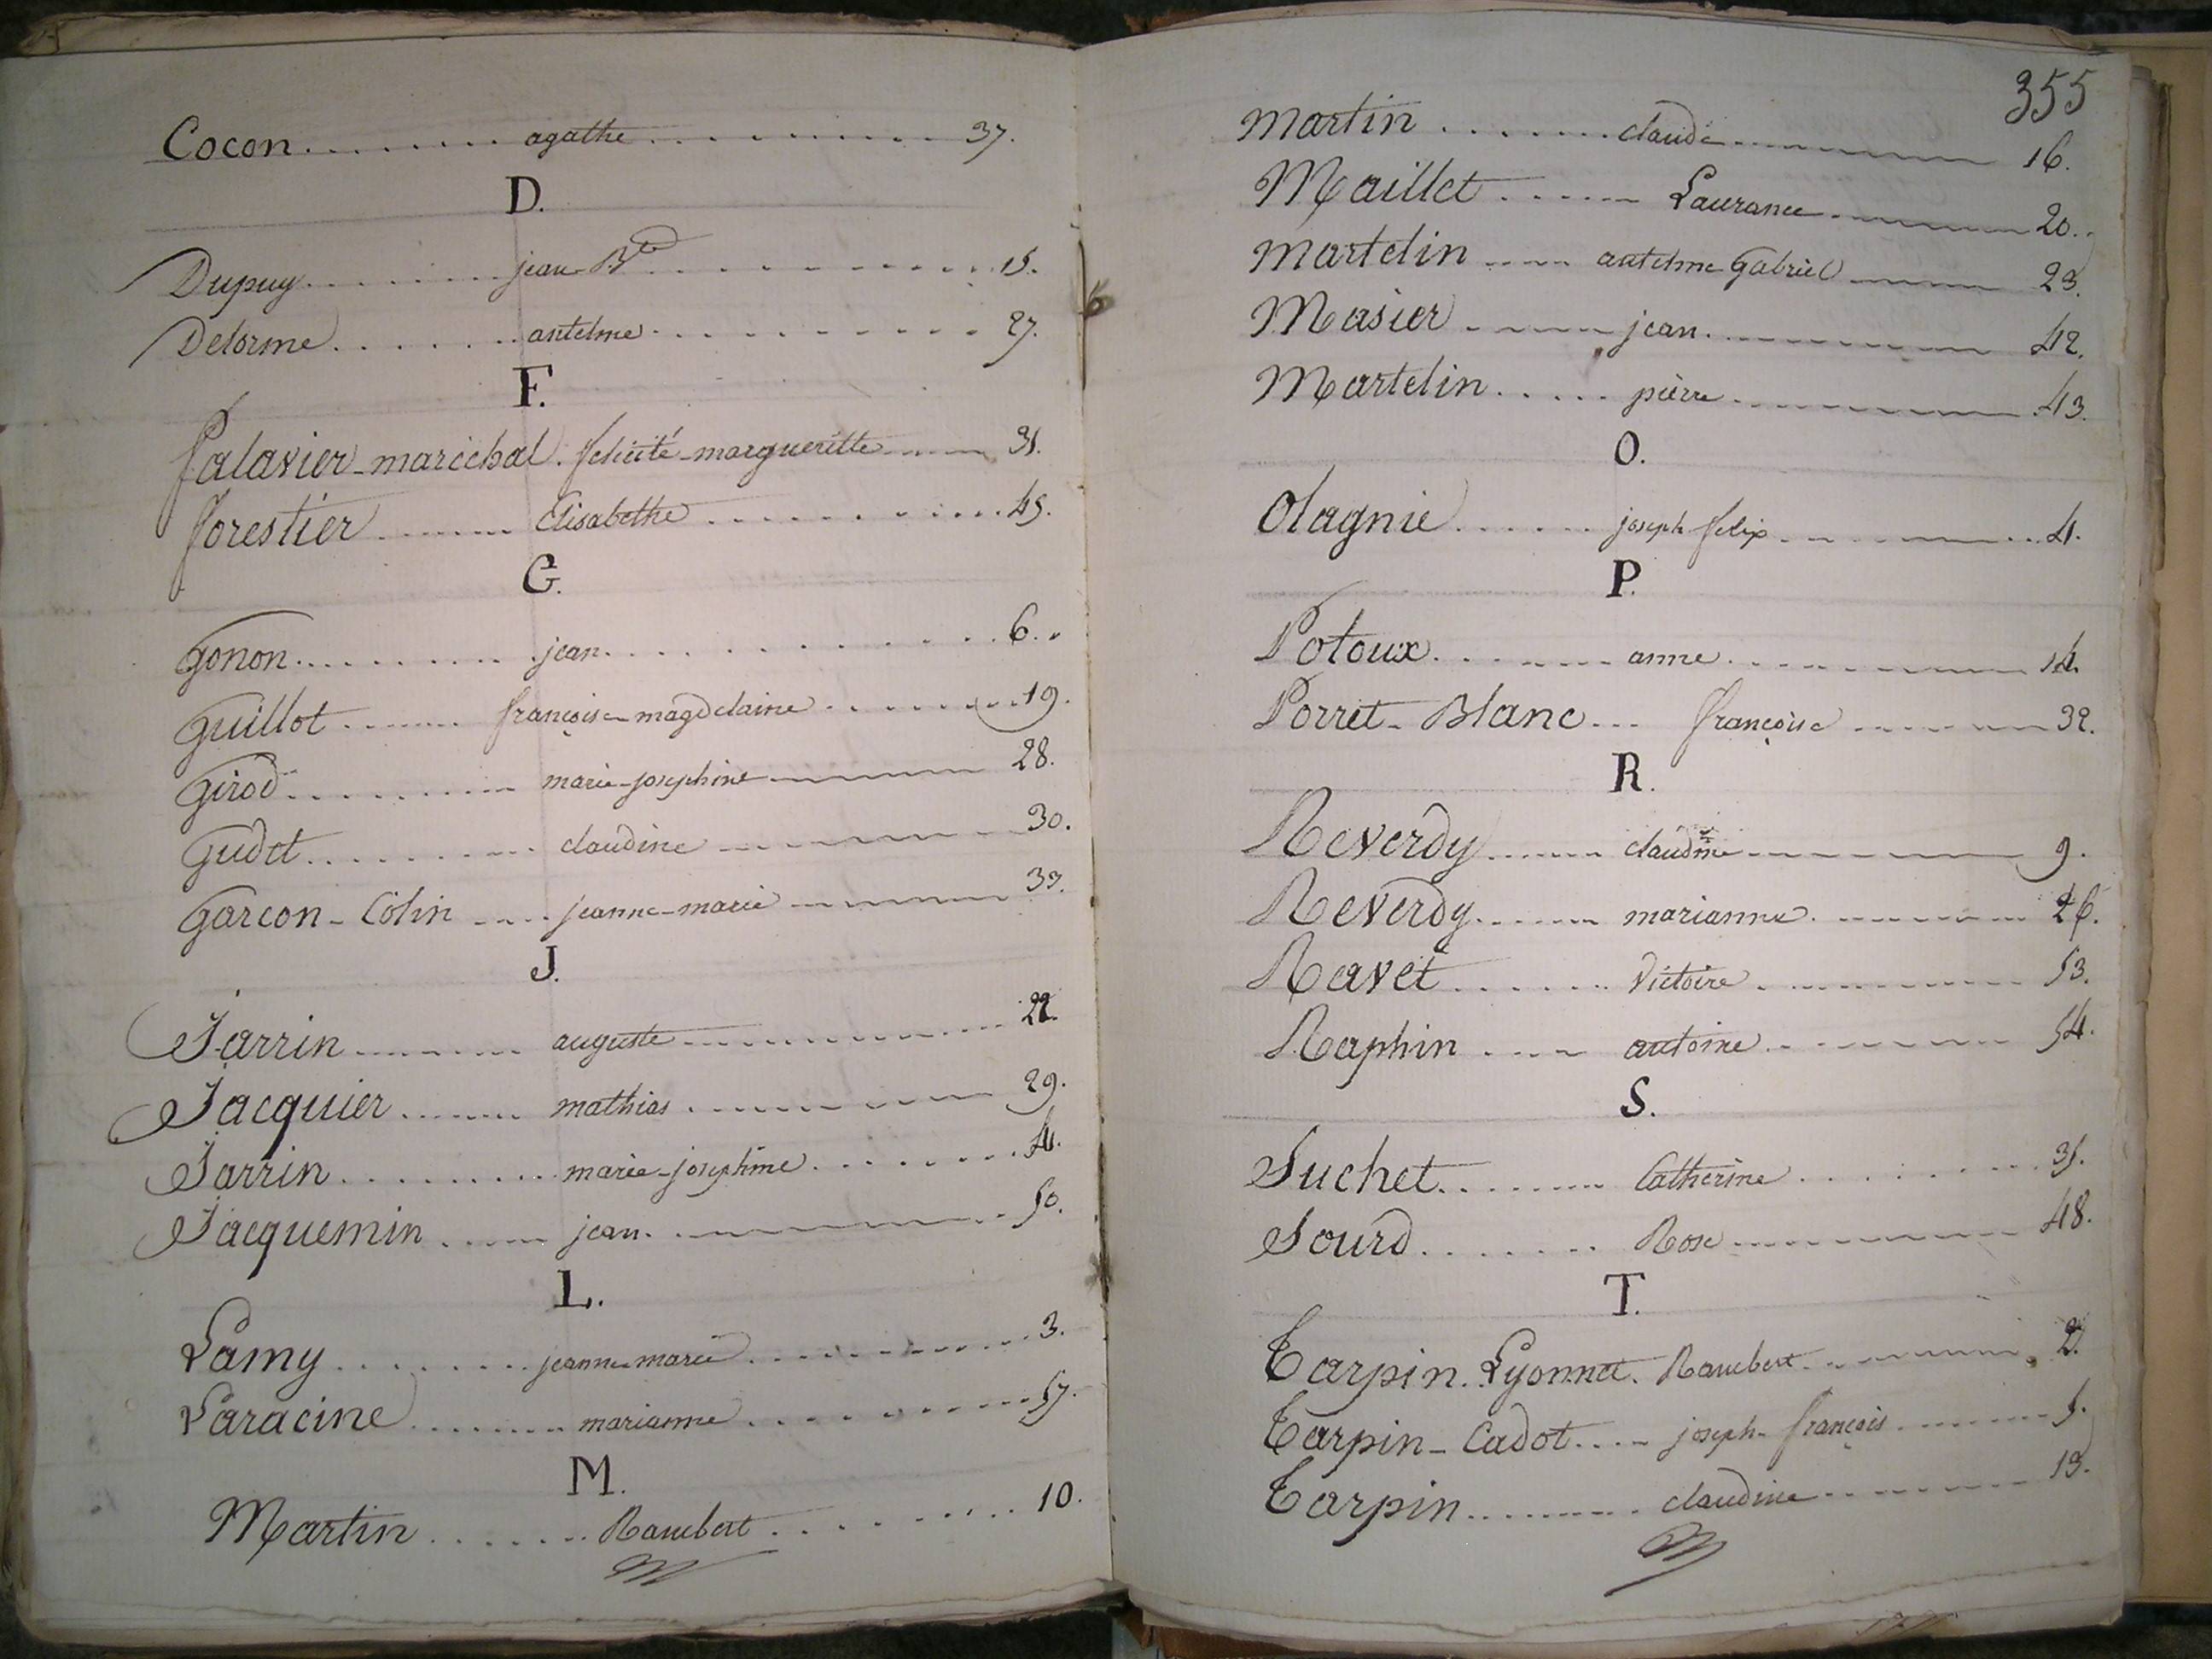 Cocon ........ agathe ........ 37.
D.
Dupuy ........ jean Bte ........ 15.
Delorme ........ antelme ........ 27.
F.
falavier-maréchal. felicité-margueritte ........ 31.
forestier ........ Elisabethe ........ 45.
G.
Gonon ........ jean ........ 6.
Guillot ........ françoise-magdelaine ........ 19.
Girod ........ marie-josephine ........ 28.
Gudet ........ claudine ........ 30.
Garcon-Colin ........ jeanne-marie ........ 33.
J.
Jarrin ........ auguste ........ 22.
Jacquier ........ mathias ........ 29.
Jarrin ........ marie-josephine ........
Jacquemin ........ jean ........ 50.
L.
Lamy ........ jeanne-marie ........ 3.
Laracine ........ marianne ........ 57.
M.
Martin ........ Rambert ........ 10.
355
martin ........ claude ........ 16.
Maillet ........ Laurance ........ 20.
martelin ........ antelme Gabriel ........ 23.
Masier ........ jean ........ 42.
Martelin ........ pierre ........ 43.
O.
Olagnié ........ joseph felix ........ 4.
P.
Potoux ........ anne ........ 14.
Porret-Blanc ... françoise ........ 32.
R.
Reverdy ........ claudine ........ 9.
Reverdy ........ marianne ........ 26.
Ravet ........ Victoire ........ 53.
Raphin ........ antoine ........ 54.
S.
Suchet ........ Catherine ........ 35.
Sourd ........ Rose ........ 48.
T.
Tarpin. Lyonnet. Rambert ........ 2.
Tarpin-Cadot .... joseph-françois ........ 5.
Tarpin ........ claudine ........ 13.